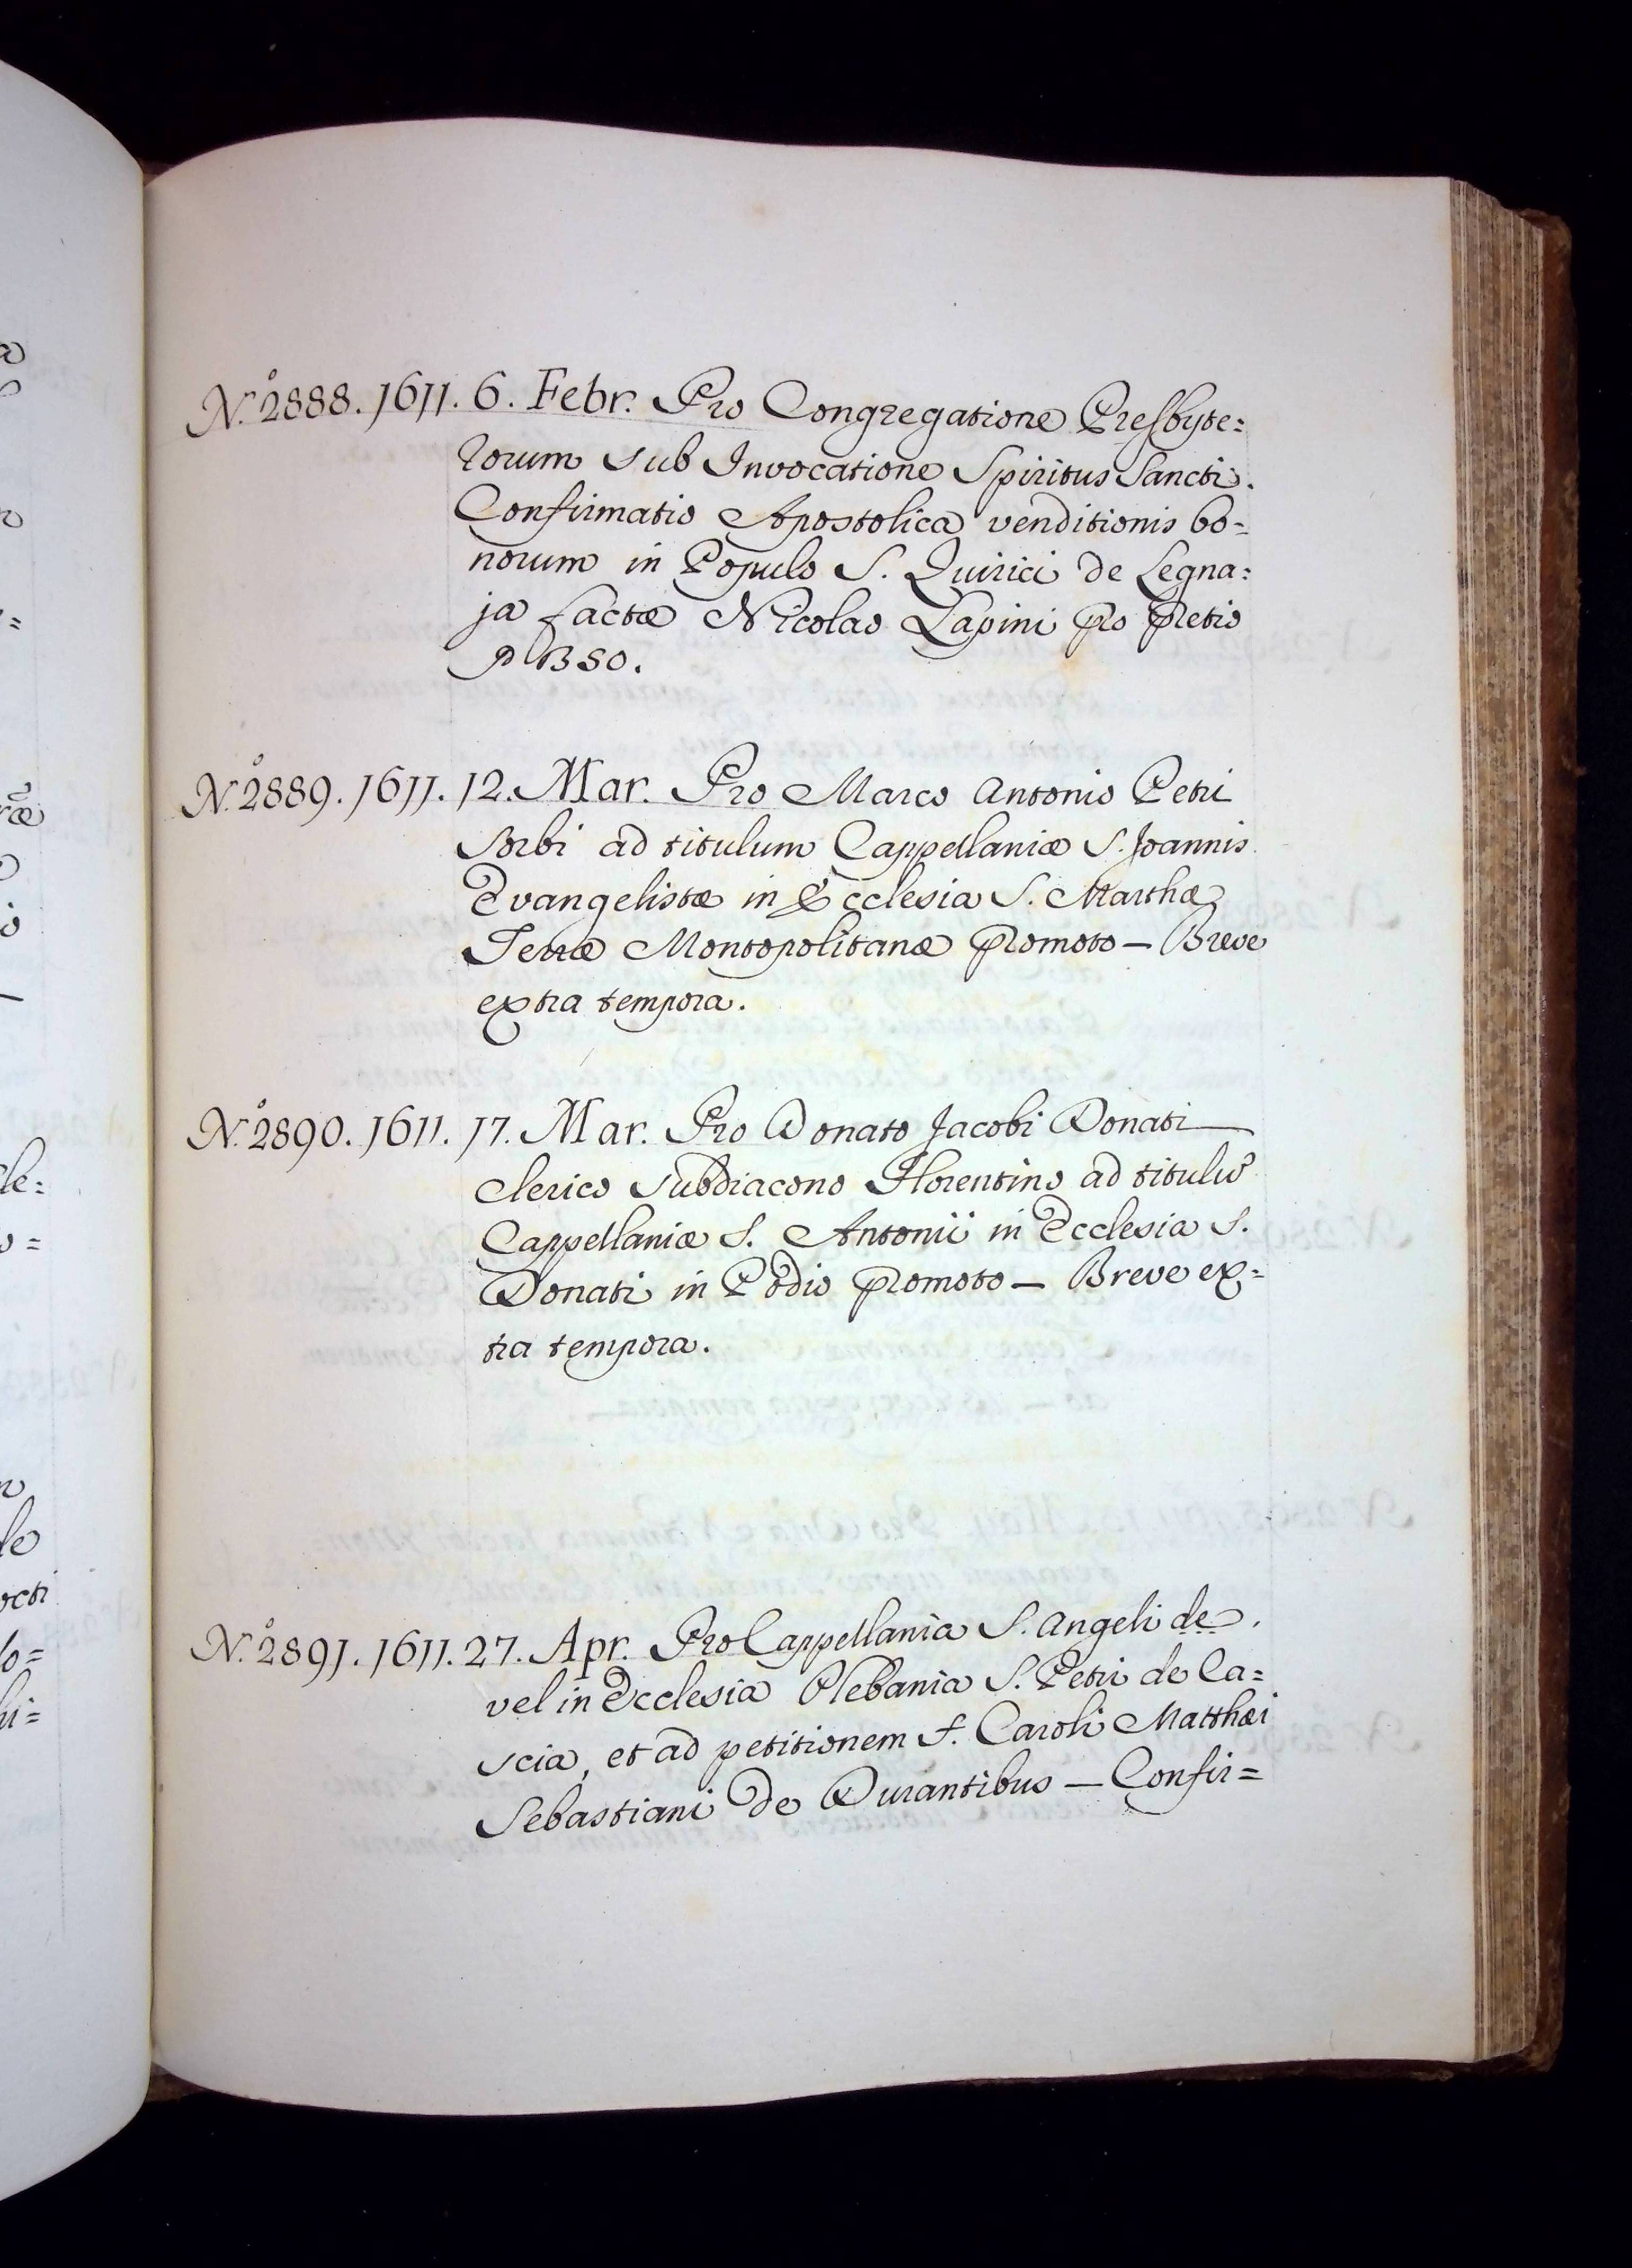 N.º 2888. 1611. 6. Febr. Pro Congregatione Presbyte=
rorum sub Invocatione Spiritus Sancti.
Confirmatio Apostolica venditionis bo=
norum in Populo S. Quirici de Legna=
ja factæ Nicolao Lapini pro pretio
N.º 2889. 1611. 12. Mar. Pro Marco Antonio Petri
Sorbi ad titulum Cappellaniæ S. Joannis
Evangelistæ in Ecclesia S. Marthæ
Terræ Montopolitanæ promoto — Breve
extra tempora.
N.º 2890. 1611. 17. Mar. Pro Donato Jacobi Donati
Clerico Subdiacono Florentino ad titulũ
Cappellaniæ S. Antonii in Ecclesia S.
Donati in Podio promoto — Breve ex=
tra tempora.
N.º 2891. 1611. 27. Apr. Pro Cappellania S. Angeli de
vel in Ecclesia Plebania S. Petri de Ca=
scia, et ad petitionem f. Caroli Matthæi
Sebastiani de Durantibus — Confir=